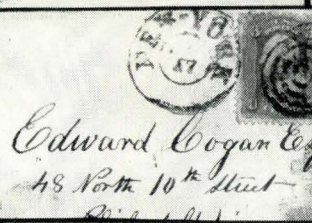 NEW YORK
27
Edward Cogan Es
48 North 10th Street